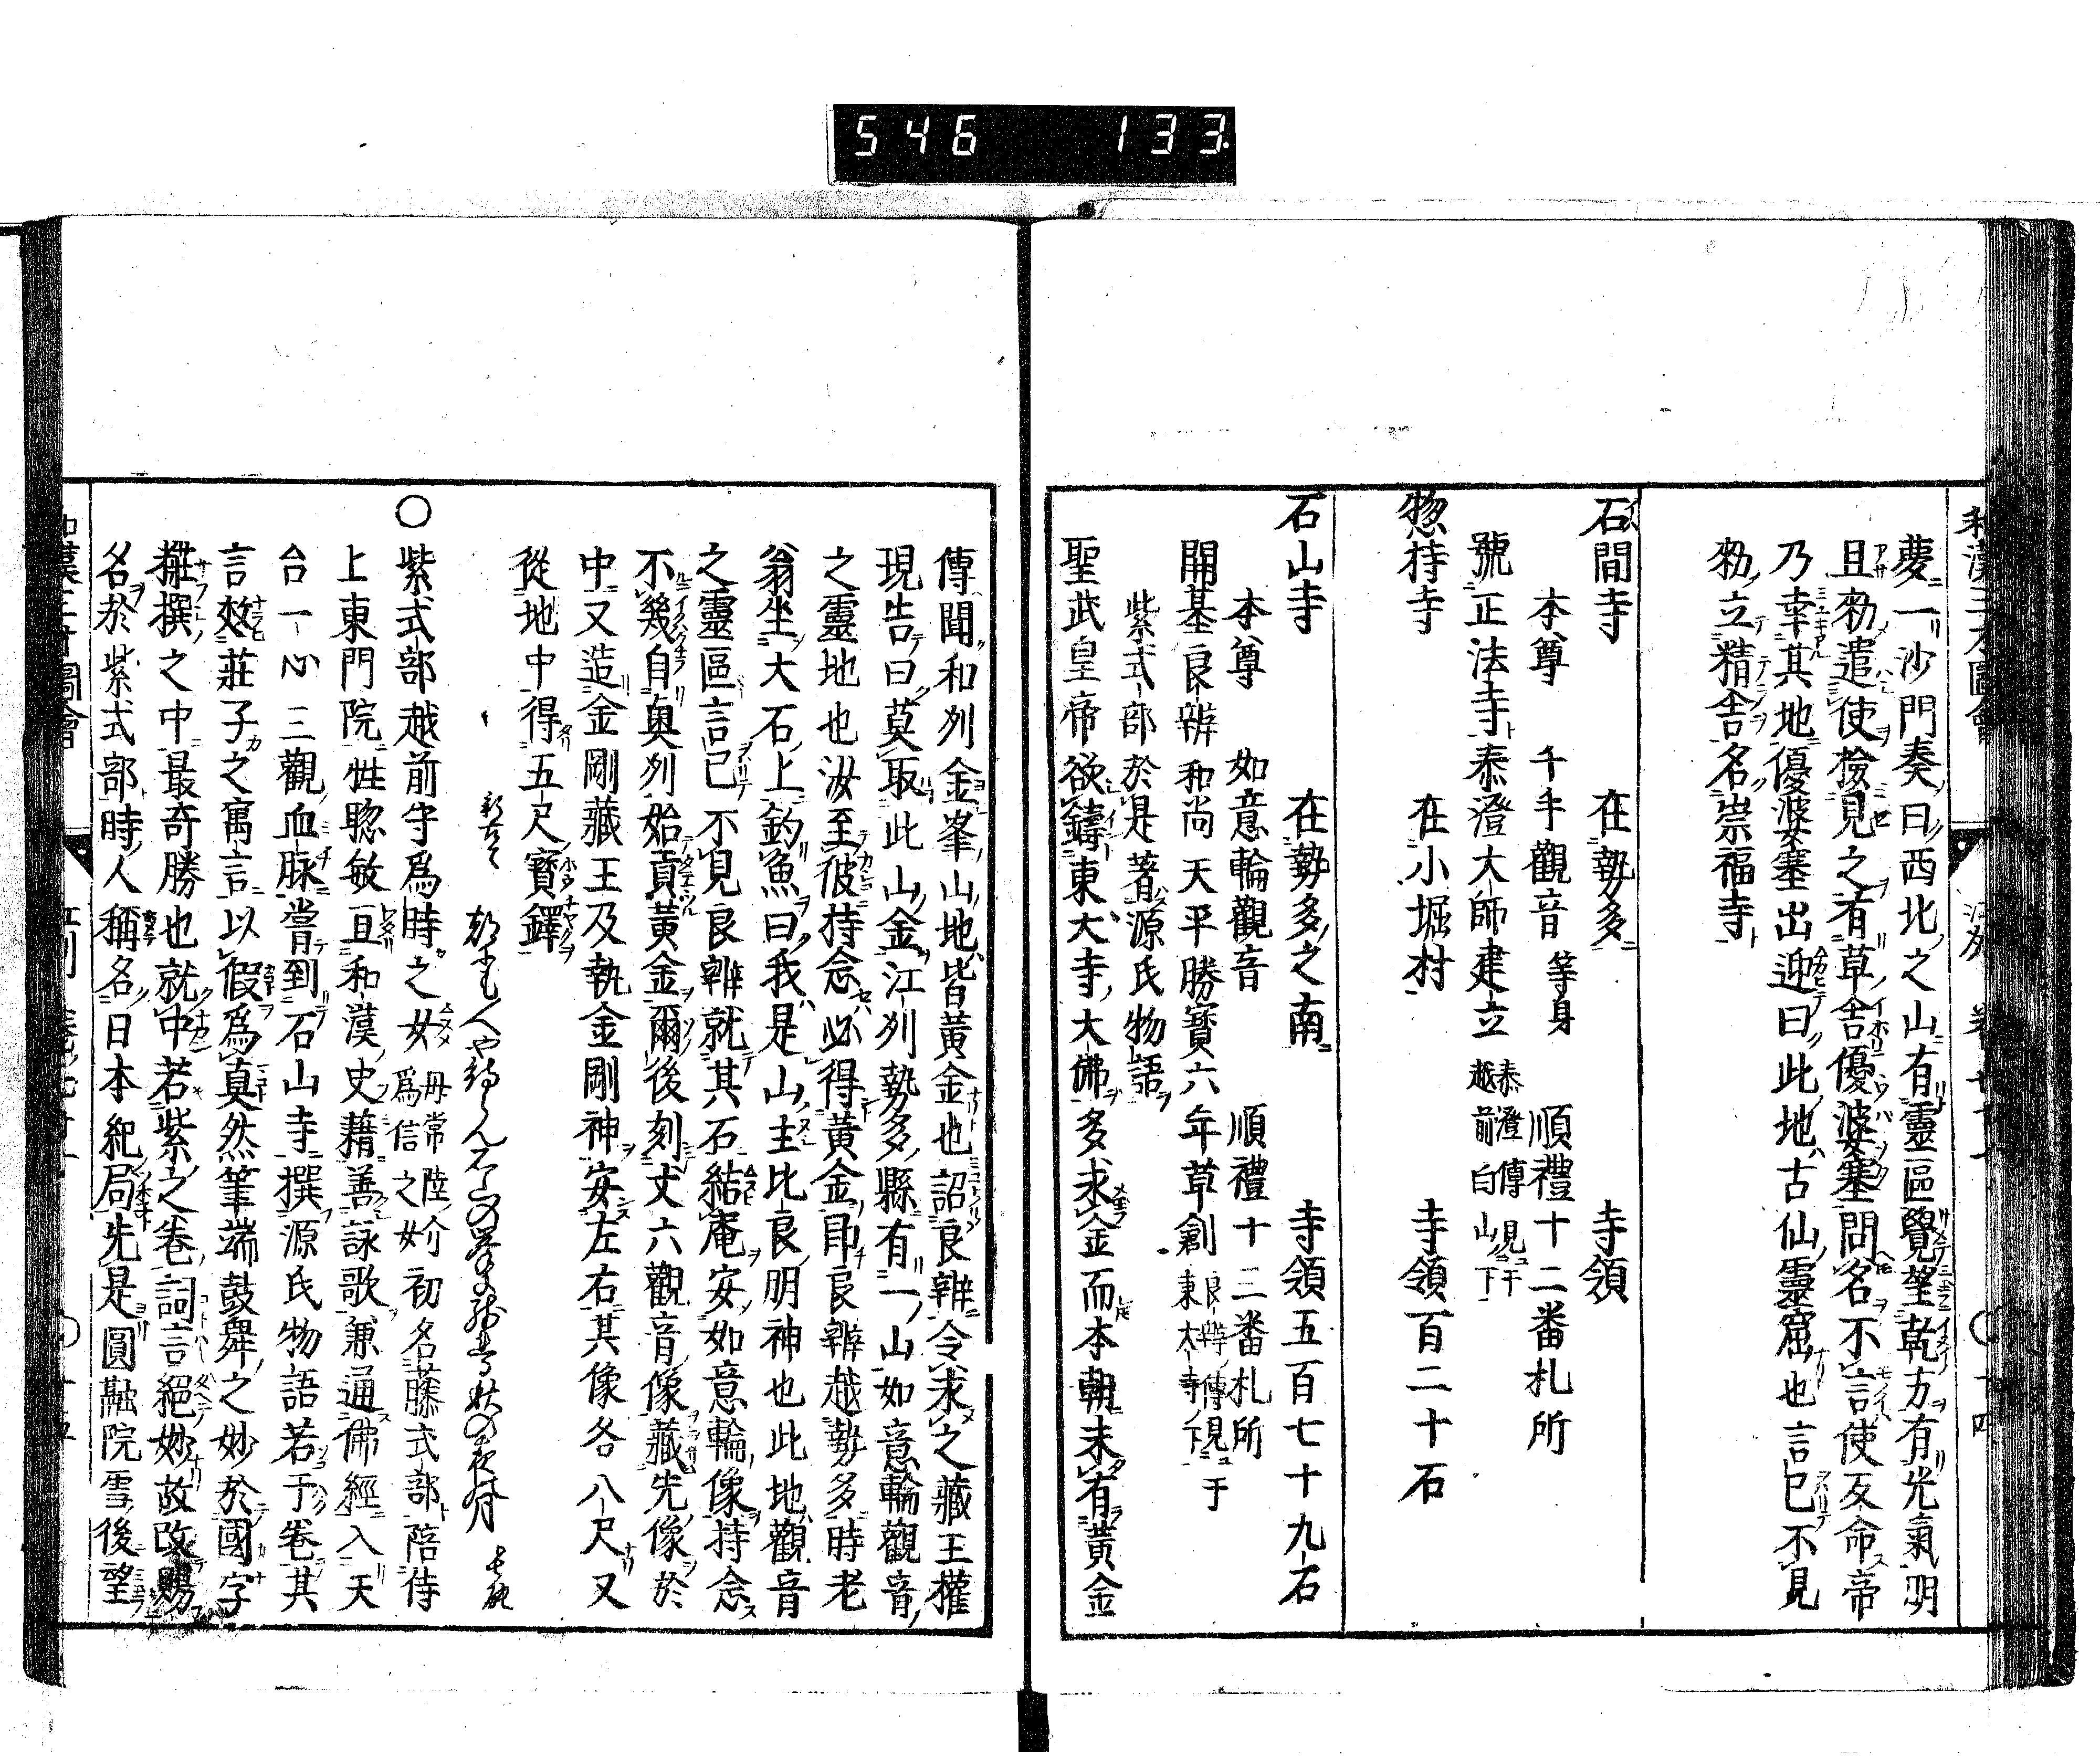 546 133
和漢三才圖會
夢一沙門奏曰西北之山有靈區覺望乾方有光氣明
且勑遣使檢見之有草舍優婆塞問名不言使反命帝
乃幸其地優婆塞出迎曰此地古仙靈窟也言已不見
勑立精舍名崇福寺
石間寺 在勢多 寺領
本尊 千手觀音 等身 順禮十二番札所
號正法寺泰澄大師建立 泰澄傳見于越前白山下
惣持寺 在小堀村 寺領百二十石
石山寺 在勢多之南 寺領五百七十九石
本尊 如意輪觀音 順禮十三番札所
開基良辨和尚天平勝寶六年草創 良辨傳見于東大寺下
紫式部於是著源氏物語
聖武皇帝欲鑄東大寺大佛多求金而本朝未有黃金
傳聞和刕金峯山地皆黃金也詔良辨令求之藏王權
現告曰莫取此山金江刕勢多縣有一山如意輪觀音
之靈地也汝至彼持念必得黃金卽良辨越勢多時老
翁坐大石上釣魚曰我是山主比良明神也此地觀音
之靈區言已不見良辨就其石結庵安如意輪像持念
不幾自奧刕始貢黃金爾後刻丈六觀音像藏先像於
中又造金剛藏王及執金剛神安左右其像各八尺又
從地中得五尺寶鐸
新古今 都にも人や待らん石山の峯に残れる秋の夜の月 長能
○紫式部越前守爲時之女 母常陸介爲信之女 初名藤式部陪侍
上東門院性聰敏且和漢史藉善詠歌兼通佛經入天
台一心三觀血脉嘗到石山寺撰源氏物語若干卷其
言效莊子之寓言以假爲真然筆端鼓舞之妙於國字
雜撰之中最奇勝也就中若紫之卷詞言絕妙故改賜
名於紫式部時人稱名日本紀局先是圓融院雪後望